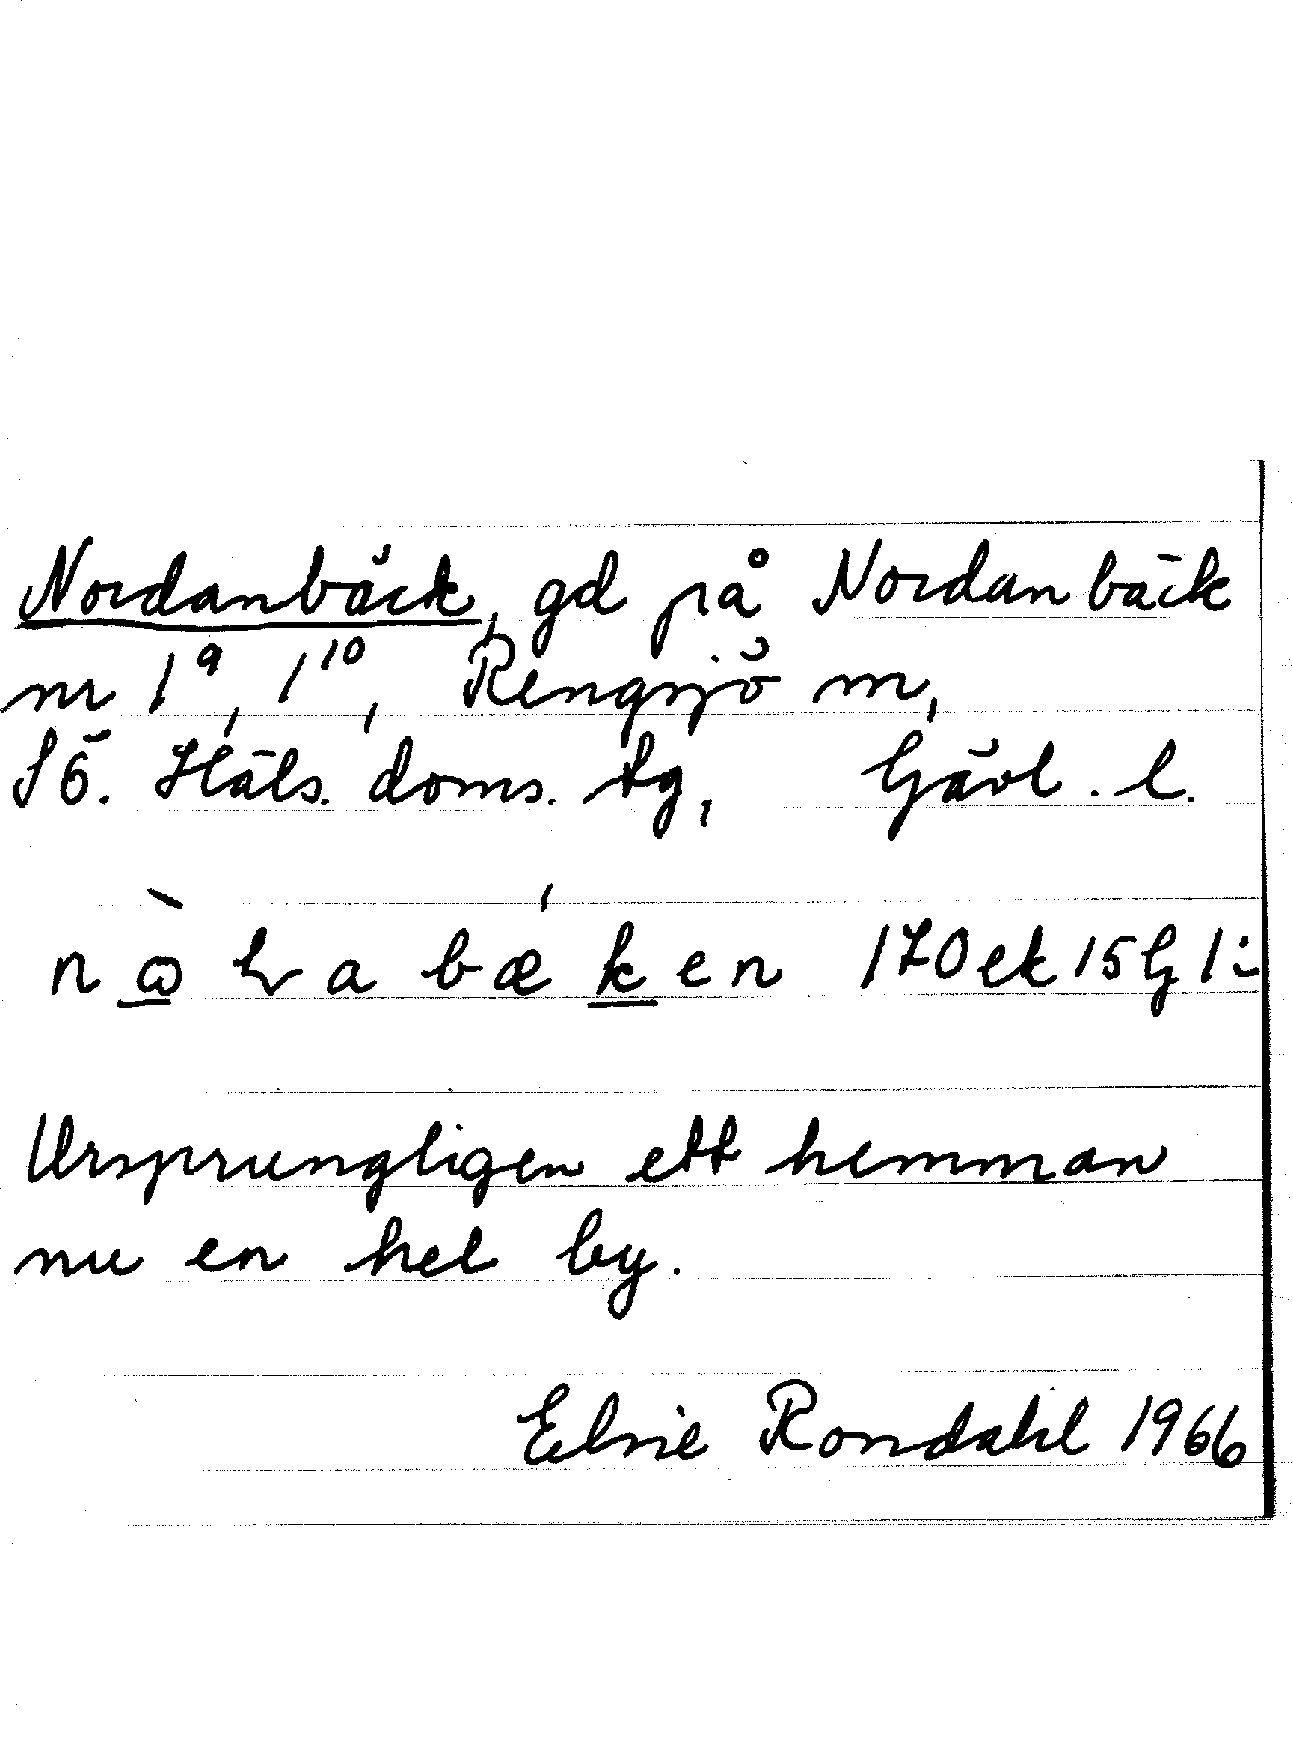 Nordanbäck, gd på Nordanbäck
nr 1⁹, 1¹⁰, Rengsjö sn,
Sö. Häls. doms. tg, Gävl. l.
170 ek 15G 1:
Ursprungligen ett hemman
nu en hel by.
Elsie Rondahl 1966